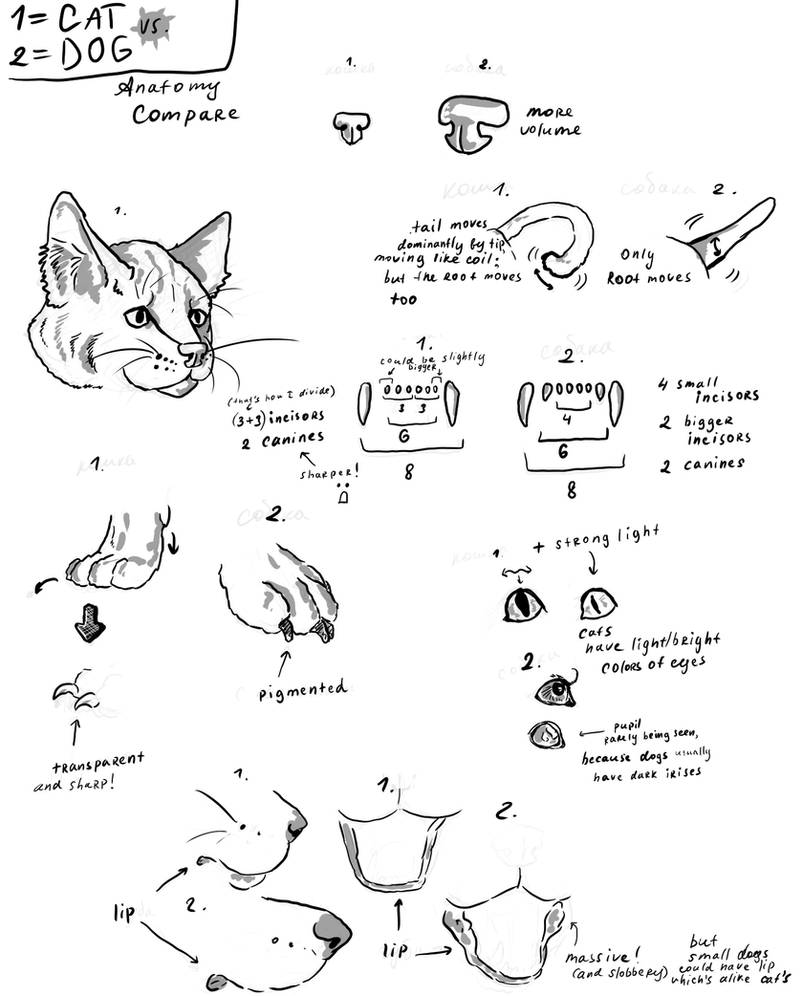 1= CAT vs.
2= DOG
Anatomy
Compare
кошка
1.
собака
2.
more
volume
1.
кошка
1.
tail moves
dominantly by tip,
moving like coil;
but the Root moves
too
собака 2.
Only
Root moves
1.
could be slightly
bigger
3 3
6
8
(that's how I divide)
(3+3) incisors
2 canines
sharper!
:D
собака
2.
4
6
8
4 small
incisors
2 bigger
incisors
2 canines
кошка
1.
transparent
and sharp!
собака
2.
pigmented
кошка
1.
+ strong light
cats
have light/bright
colors of eyes
2.
pupil
rarely being seen,
because dogs usually
have dark irises
1.
2.
lip
1.
2.
lip
massive!
(and slobbery)
but
small dogs
could have lip
which's alike cat's